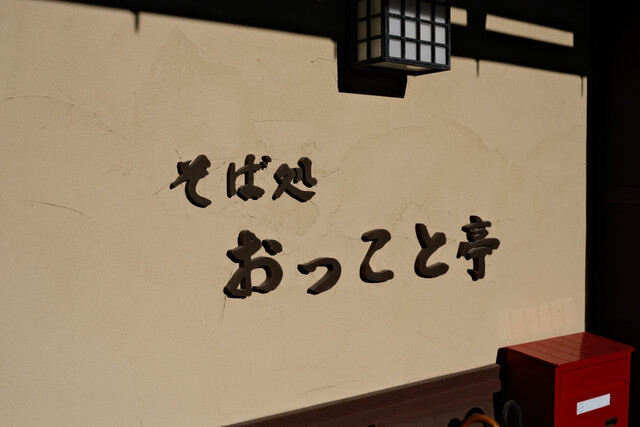 そば処
おってと亭